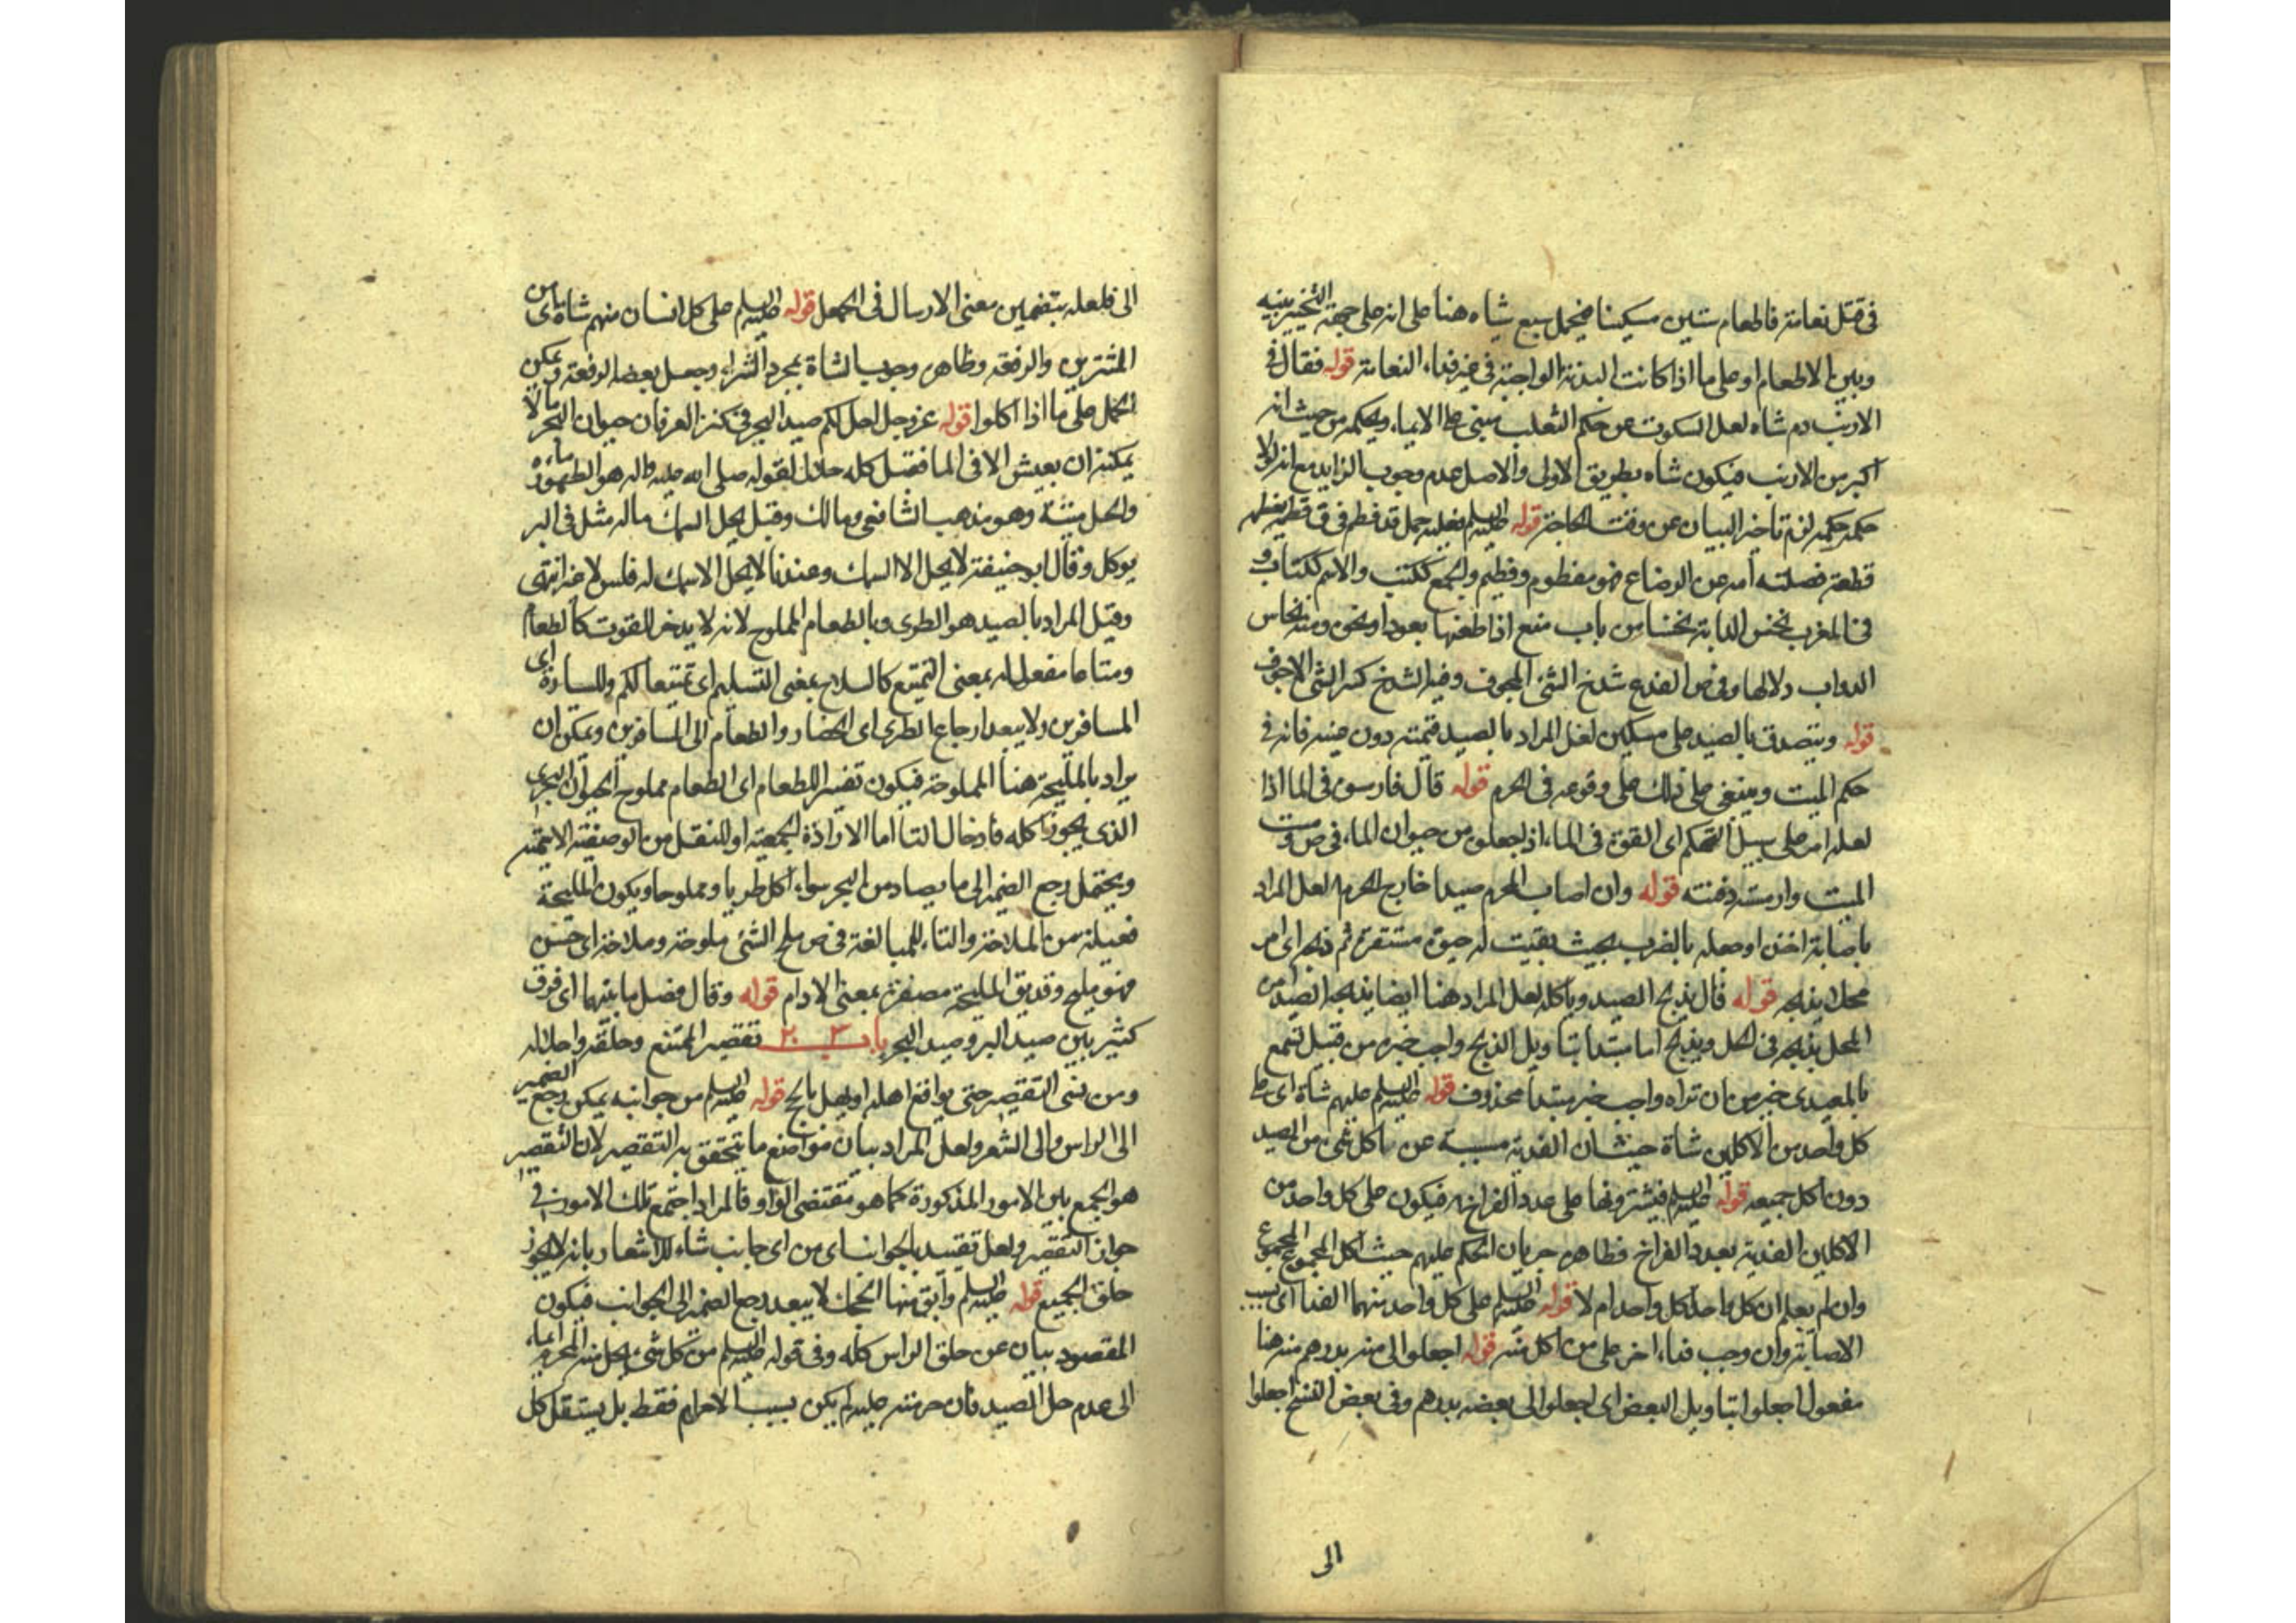 في قتل نعامة فاطعام ستين مسكينا فيحمل سبع شياه هنا على انه على جهة التخيير بينه
وبين الاطعام او على ما اذا كانت البدنة الواجبة في غير فداء النعامة قوله فقال في
الارنب دم شاه لعل السكوت عن حكم الثعلب مبنى على الايماء وحكمه من حيث انه
اكبر من الارنب فيكون شاه بطريق الاولى والاصل عدم وجوب الزايد مع انه لولا
حكمه حكمه لزم تاخير البيان عن وقت الحاجة قوله عليه السلم بفعليه حمل قد فطم في ق فطمه يفطمه
قطعة فصلته امه عن الرضاع فهو مفطوم وفطيم والجمع ككتب والاسم ككتاب و
في المغرب نخس الدابة نخسا من باب منع اذا طعنها بعود او نحوه ومنه نخاس
الدواب دلالها وفي ص الفدع شدخ الشئ المجوف وفيه الشدخ كسر الشئ الاجوف
قوله ويتصدق بالصيد على مسكين لعل المراد بالصيد قيمته دون عينه فانه في
حكم الميت وينبغي على ذلك على وقوعه في الحرم قوله قال فارسوه في الما اذا
لعله امر على سبيل التهكم اى القوه في الماء اذ جعلوه من حيوان الماء في ص رمست
الميت وارمسته دفنته قوله وان اصاب المحرم صيدا خارج الحرم لعل المراد
باصابة اخذه او جعله بالضرب بحيث بقيت له حيوة مستقرة ثم ذبحه اى امر
محلا يذبحه قوله قال يذبح الصيد وياكله لعل المراد هنا ايضا يذبحه الصيد من
المحل يذبحه في الحل ويذبح اما مبتدا بتاويل الذبح واجب خبره من قبيل تسمع
بالمعيدى خير من ان تراه واجب خبر مبتدا محذوف قوله عليه السلم عليهم شاة اى على
كل واحد من الاكلين شاة حيث ان الفدية مسببة عن اكل شئ من الصيد
دون اكل جميعه قوله عليه السلم فيشترونها على عدد الفراخ فيكون على كل واحد من
الاكلين الفدية بعدد الفراخ فظاهره جريان الحكم عليهم حيث اكل المجموع المجموع
وان لم يعلم ان كل واحد اكل واحد ام لا قوله عليه السلم على كل واحد منهما الفدا اى بسبب
الاصابة وان وجب فداء اخر على من اكل منه قوله اجعلوا الى منه بدرهم منه هنا
مفعول اجعلوا بتاويل البعض اى اجعلوا الى بعضه بدرهم وفي بعض النسخ اجعلوا
الى
الى فلعله بتضمين معنى الارسال في الجعل قوله عليه السلم على كل انسان منهم شاة اى من
المشترين والرفقة وظاهره وجوب الشاة بمجرد الشراء وجعل بعضه لرفقة ويمكن
الحمل على ما اذا اكلوا قوله عز وجل احل لكم صيد البحر في كنز العرفان حيوان البحر ما لا
يمكنه ان يعيش الا في الما فقيل كله حلال لقوله صلى الله عليه واله هو الطهور ماءه
والحل ميتته وهو مذهب الشافعي ومالك وقيل يحل السمك ماله مثل في البر
يوكل وقال ابو حنيفة لا يحل الا السمك وعندنا لا يحل الا سمك له فلس لا غير انتهى
وقيل المراد بالصيد هو الطرى وبالطعام المملوح لانه لا يدخر للقوت كالطعام
ومتاعا مفعول له بمعنى التمتيع كالسلام بمعنى التسليم اى تمتيعا لكم وللسيارة اى
المسافرين ولا يبعد ارجاع الطرى اى الحضار والطعام الى المسافرين ويمكن ان
يراد بالمليحة هنا المملوحة فيكون تفسير اللطعام اى الطعام مملوح الحيوان البحرى
الذى يجوز اكله فادخال التا اما الارادة الجمعية او للنقل من الوصفية الاسمية
ويحتمل رجع الضمير الى ما يصاد من البحر سواء اكل طريا ومملوحا ويكون المليحة
فعيلة من الملاحة والتاء للمبالغة في ص ملح الشئ ملوحة وملاحة اى حسن
فهو مليح وقد يق المليحة مصغرة بمعنى الادام قوله وقال فصل ما بينهما اى فرق
كثير بين صيد البر وصيد البحر باب تقصير المتمتع وحلقه واحلاله
ومن نسى التقصير حتى يواقع اهله او يهل بالحج قوله عليه السلم من جوانبه يمكن رجع الضمير
الى الراس والى الشعر ولعل المراد بيان مواضع ما يتحقق به التقصير لان التقصير
هو الجمع بين الامور المذكورة كما هو مقتضى الواو فالمراد اجتمع تلك الامور في
جواز التقصير ولعل تقييد بالجوانب اى من اى جانب شاء للاشعار بانه لا يجوز
حلق الجميع قوله عليه السلم وابق منها لحجك لا يبعد رجع الضمير الى الجوانب فيكون
المقصود بيان عن حلق الراس كله وفي قوله عليه السلم من كل شئ يحل منه المحرم ايماء
الى عدم حل الصيد فان حرمته عليه لم يكن بسبب الاحرام فقط بل يستقل كل